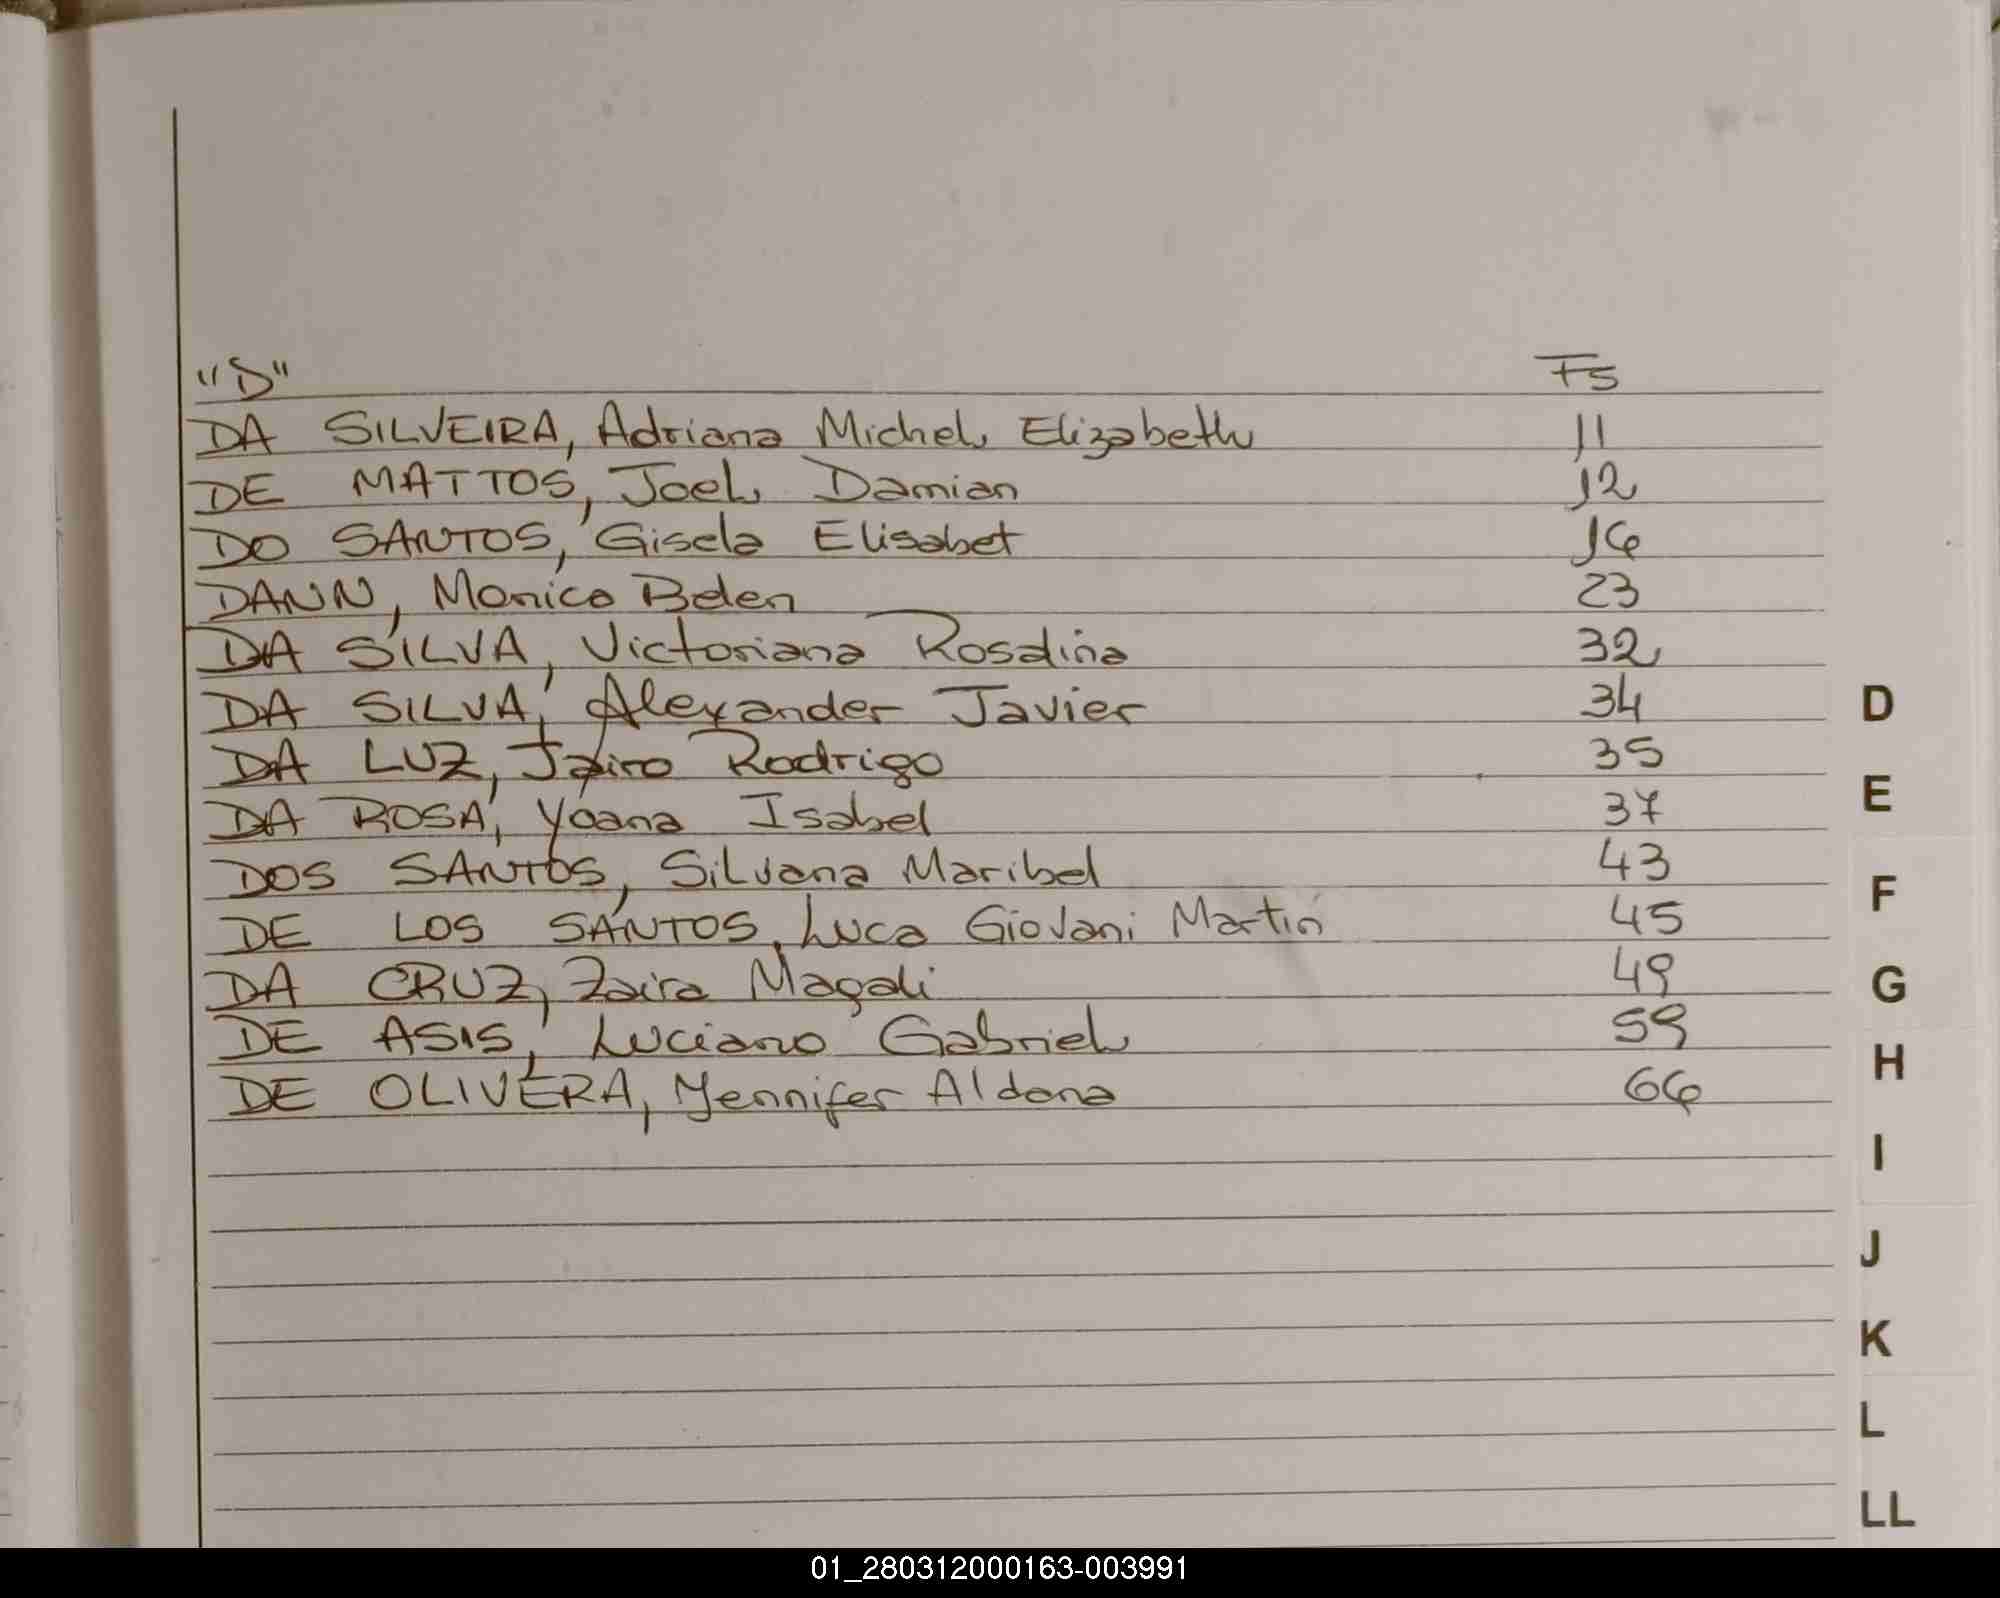 "D" Fs
DA SILVEIRA, Adriana Michel Elizabeth 11
DE MATTOS, Joel Damian 12
DO SANTOS, Gisela Elisabet 16
DANN, Monica Belen 23
DA SILVA, Victoriana Rosalina 32
DA SILVA, Alexander Javier 34
DA LUZ, Jairo Rodrigo 35
DA ROSA, Yoana Isabel 37
DOS SANTOS, Silvana Maribel 43
DE LOS SANTOS, Luca Giovani Martin 45
DA CRUZ, Zaira Magali 49
DE ASIS, Luciano Gabriel 59
DE OLIVERA, Yennifer Aldana 66
D
E
F
G
H
I
J
K
L
LL
01_280312000163-003991